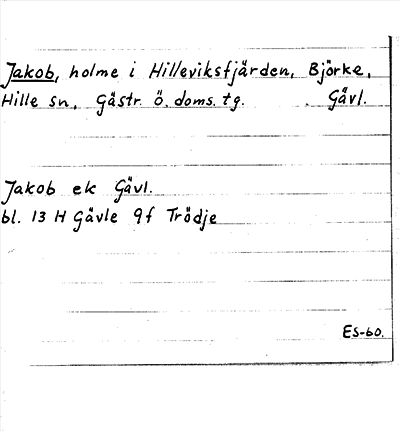 Jakob, holme i Hilleviksfjärden, Björke,
Hille sn, Gästr. ö. doms. tg. Gävl.
Jakob ek Gävl.
bl. 13 H Gävle 9f Trödje
ES-60.